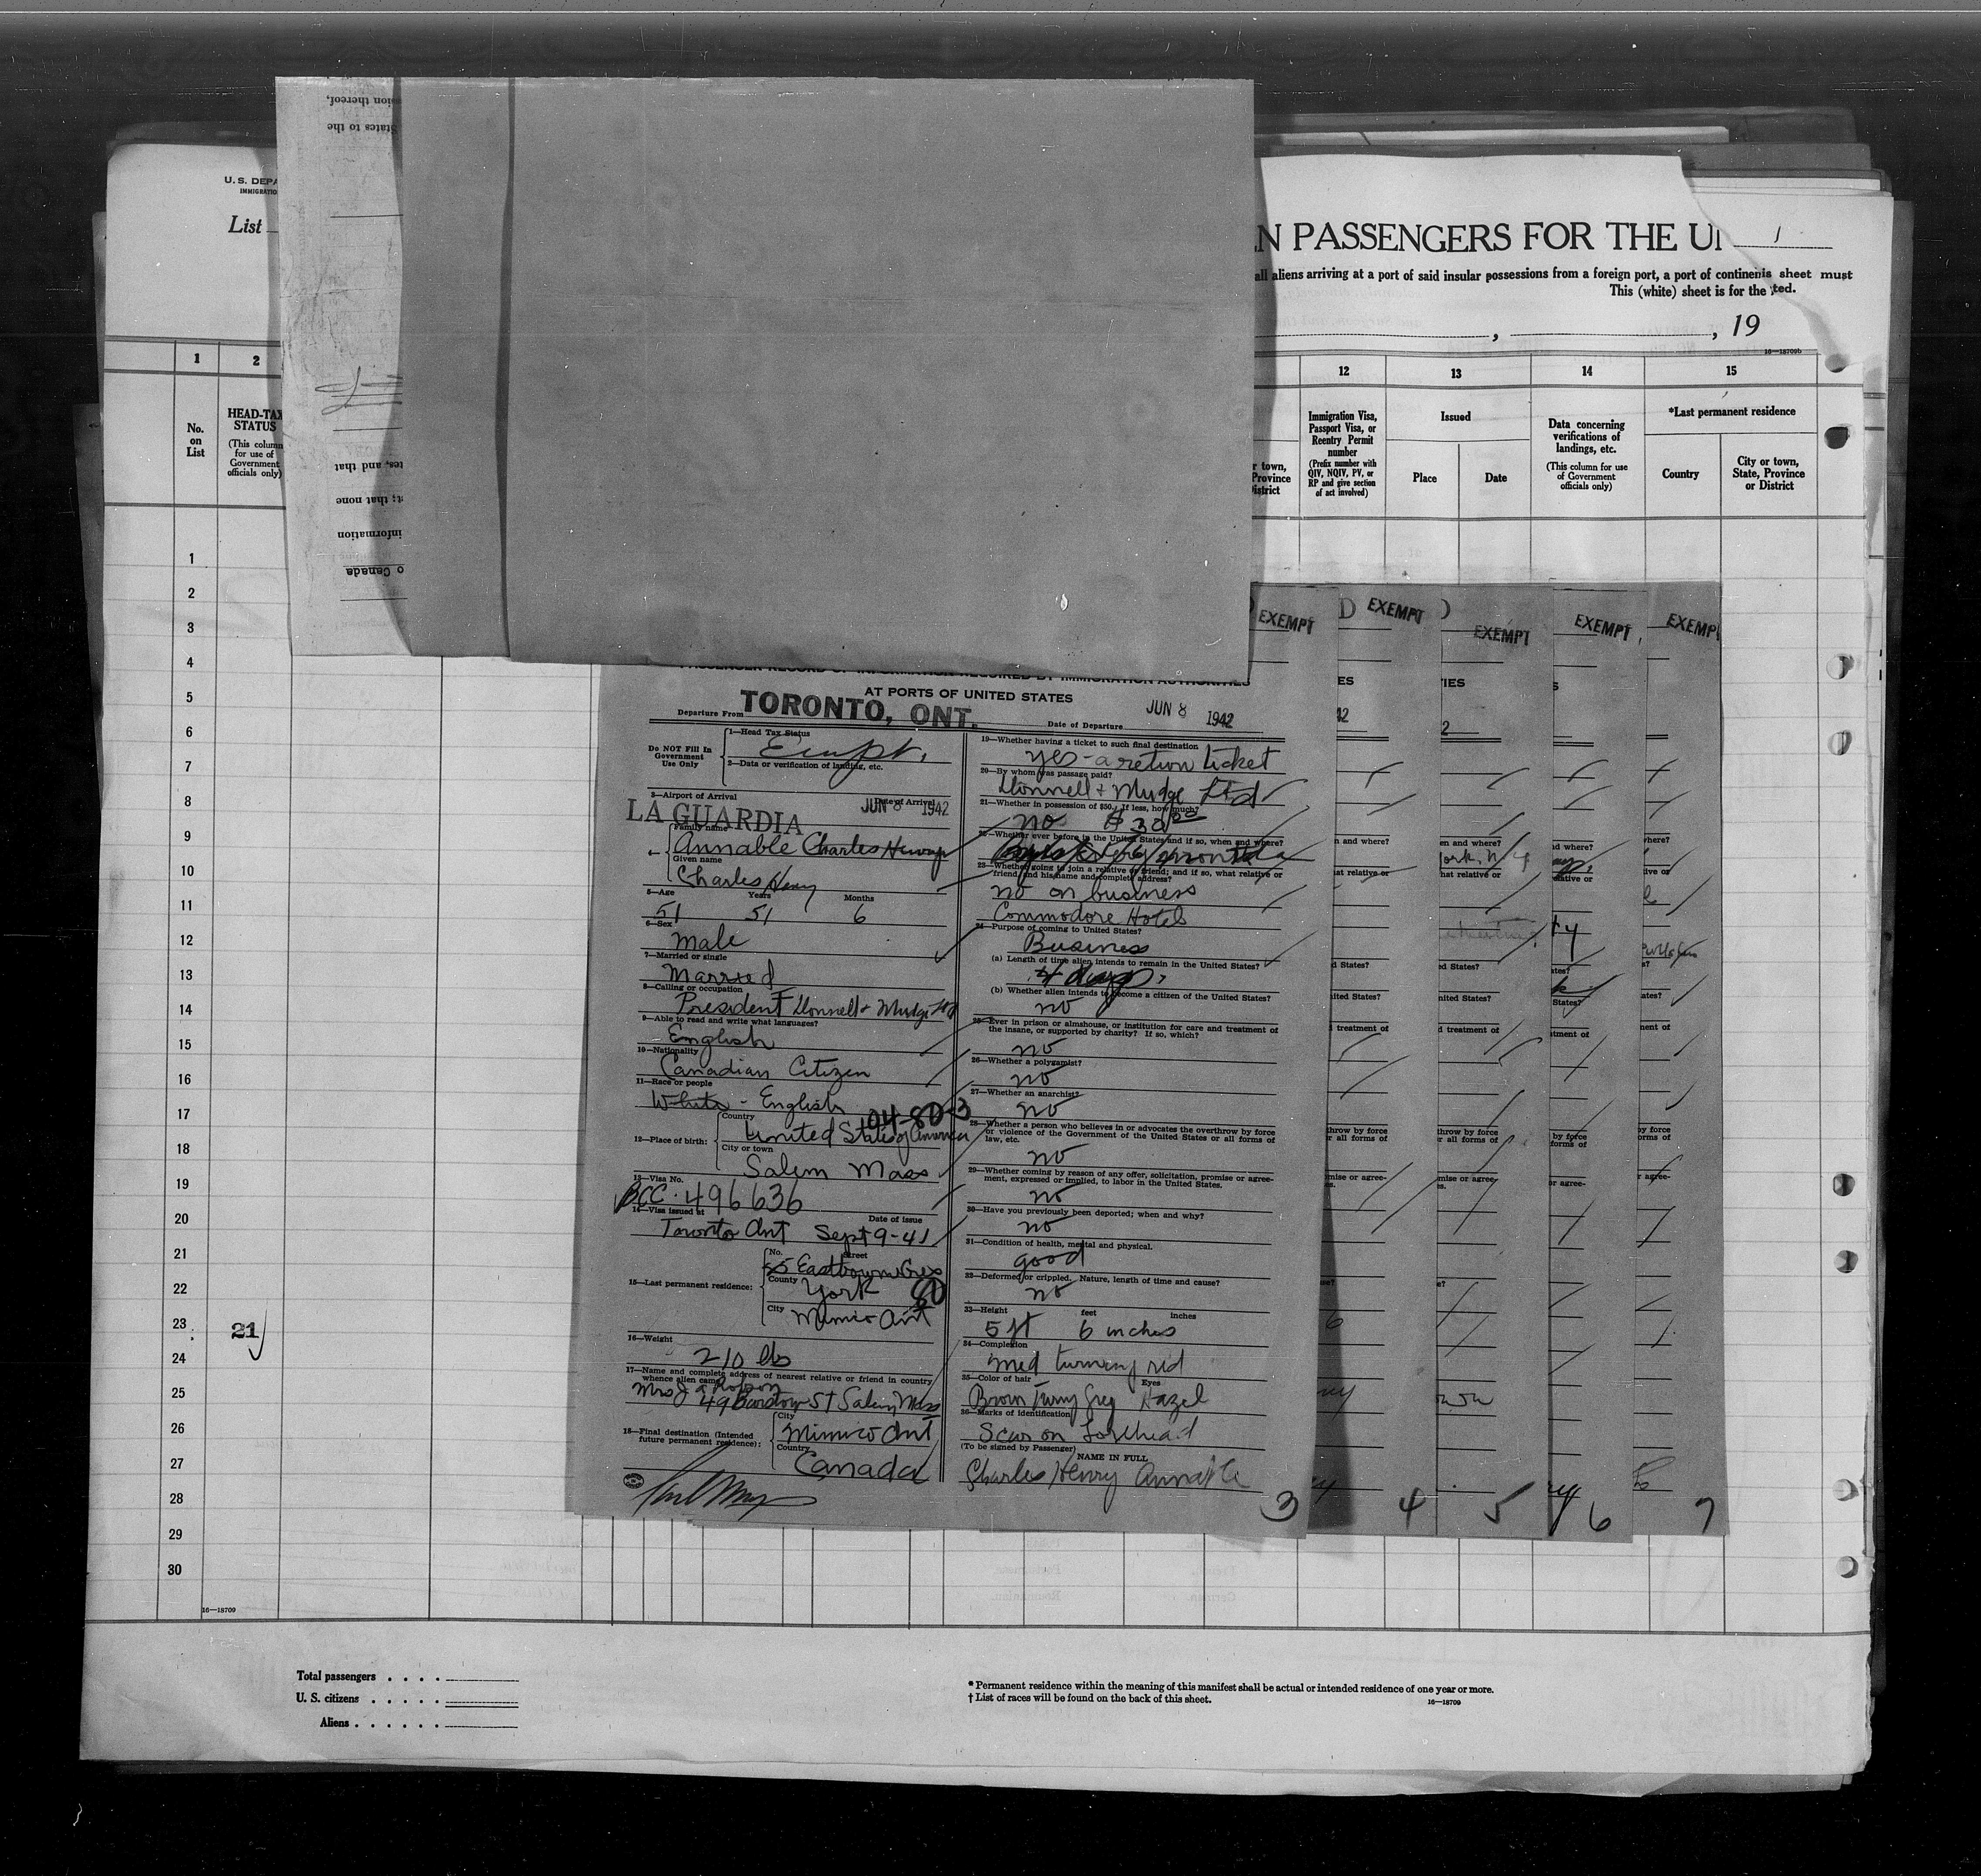 sion thereof,
States to the
tes, and that
t; that none
information
o Canada
U. S. DEPA
IMMIGRATIO
List
EN PASSENGERS FOR THE UN
1
all aliens arriving at a port of said insular possessions from a foreign port, a port of continen
is sheet must
This (white) sheet is for the
ted.
, , 19
16—18709b
1 2 12 13 14 15
No. on List
HEAD-TAX STATUS
(This column for use of Government officials only)
r town, Province District
Immigration Visa, Passport Visa, or Reentry Permit number
(Prefix number with QIV, NQIV, PV, or RP and give section of act involved)
Issued
Place Date
Data concerning verifications of landings, etc.
(This column for use of Government officials only)
*Last permanent residence
Country
City or town, State, Province or District
1
2
3
4
5
6
7
8
9
10
11
12
13
14
15
16
17
18
19
20
21
22
23 21
24
25
26
27
28
29
30
16—18709
PASSENGER RECORD OF INFORMATION REQUIRED BY IMMIGRATION AUTHORITIES
AT PORTS OF UNITED STATES
Departure From TORONTO, ONT. Date of Departure JUN 8 1942
Do NOT Fill In Government Use Only
1—Head Tax Status
Exempt.
2—Data or verification of landing, etc.
3—Airport of Arrival Date of Arrival
LA GUARDIA JUN 8 1942
4— Family name
Annable Charles Henry
Given name
Charles Henry
5—Age Years Months
51 51 6
6—Sex
Male
7—Married or single
Married
8—Calling or occupation
President Donnell & Mudge Ltd
9—Able to read and write what languages?
English
10—Nationality
Canadian Citizen
11—Race or people
White - English
04-80-3
12—Place of birth:
Country
United States of America
City or town
Salem Mass
13—Visa No.
BCC. 496636
14—Visa issued at Date of issue
Toronto Ont Sept 9-41
15—Last permanent residence:
No. Street
55 Eastbourne Cres
County
York 80
City
Mimico Ont
16—Weight
210 lbs
17—Name and complete address of nearest relative or friend in country whence alien came
Mrs J a Robson
49 Barstow St Salem Mass
18—Final destination (Intended future permanent residence):
City
Mimico Ont
Country
Canada
19—Whether having a ticket to such final destination
yes - a return ticket
20—By whom was passage paid?
Donnell & Mudge Ltd
21—Whether in possession of $50. If less, how much?
no $30.00
22—Whether ever before in the United States and if so, when and where?
23—Whether going to join a relative or friend; and if so, what relative or friend and his name and complete address?
no on business
Commodore Hotel
24—Purpose of coming to United States?
Business
(a) Length of time alien intends to remain in the United States?
4 days
(b) Whether alien intends to become a citizen of the United States?
no
25—Ever in prison or almshouse, or institution for care and treatment of the insane, or supported by charity? If so, which?
no
26—Whether a polygamist?
no
27—Whether an anarchist?
no
28—Whether a person who believes in or advocates the overthrow by force or violence of the Government of the United States or all forms of law, etc.
no
29—Whether coming by reason of any offer, solicitation, promise or agreement, expressed or implied, to labor in the United States.
no
30—Have you previously been deported; when and why?
no
31—Condition of health, mental and physical.
good
32—Deformed or crippled. Nature, length of time and cause?
no
33—Height feet inches
5 ft 6 inches
34—Complexion
med turning red
35—Color of hair Eyes
Brown turning Grey Hazel
36—Marks of identification
Scar on forehead
(To be signed by Passenger)
NAME IN FULL
Charles Henry Annable
3
EXEMPT EXEMPT EXEMPT EXEMPT EXEMPT
4 5 6 7
Total passengers . . . .
U. S. citizens . . . . .
Aliens . . . . . .
* Permanent residence within the meaning of this manifest shall be actual or intended residence of one year or more.
† List of races will be found on the back of this sheet.
16—18709